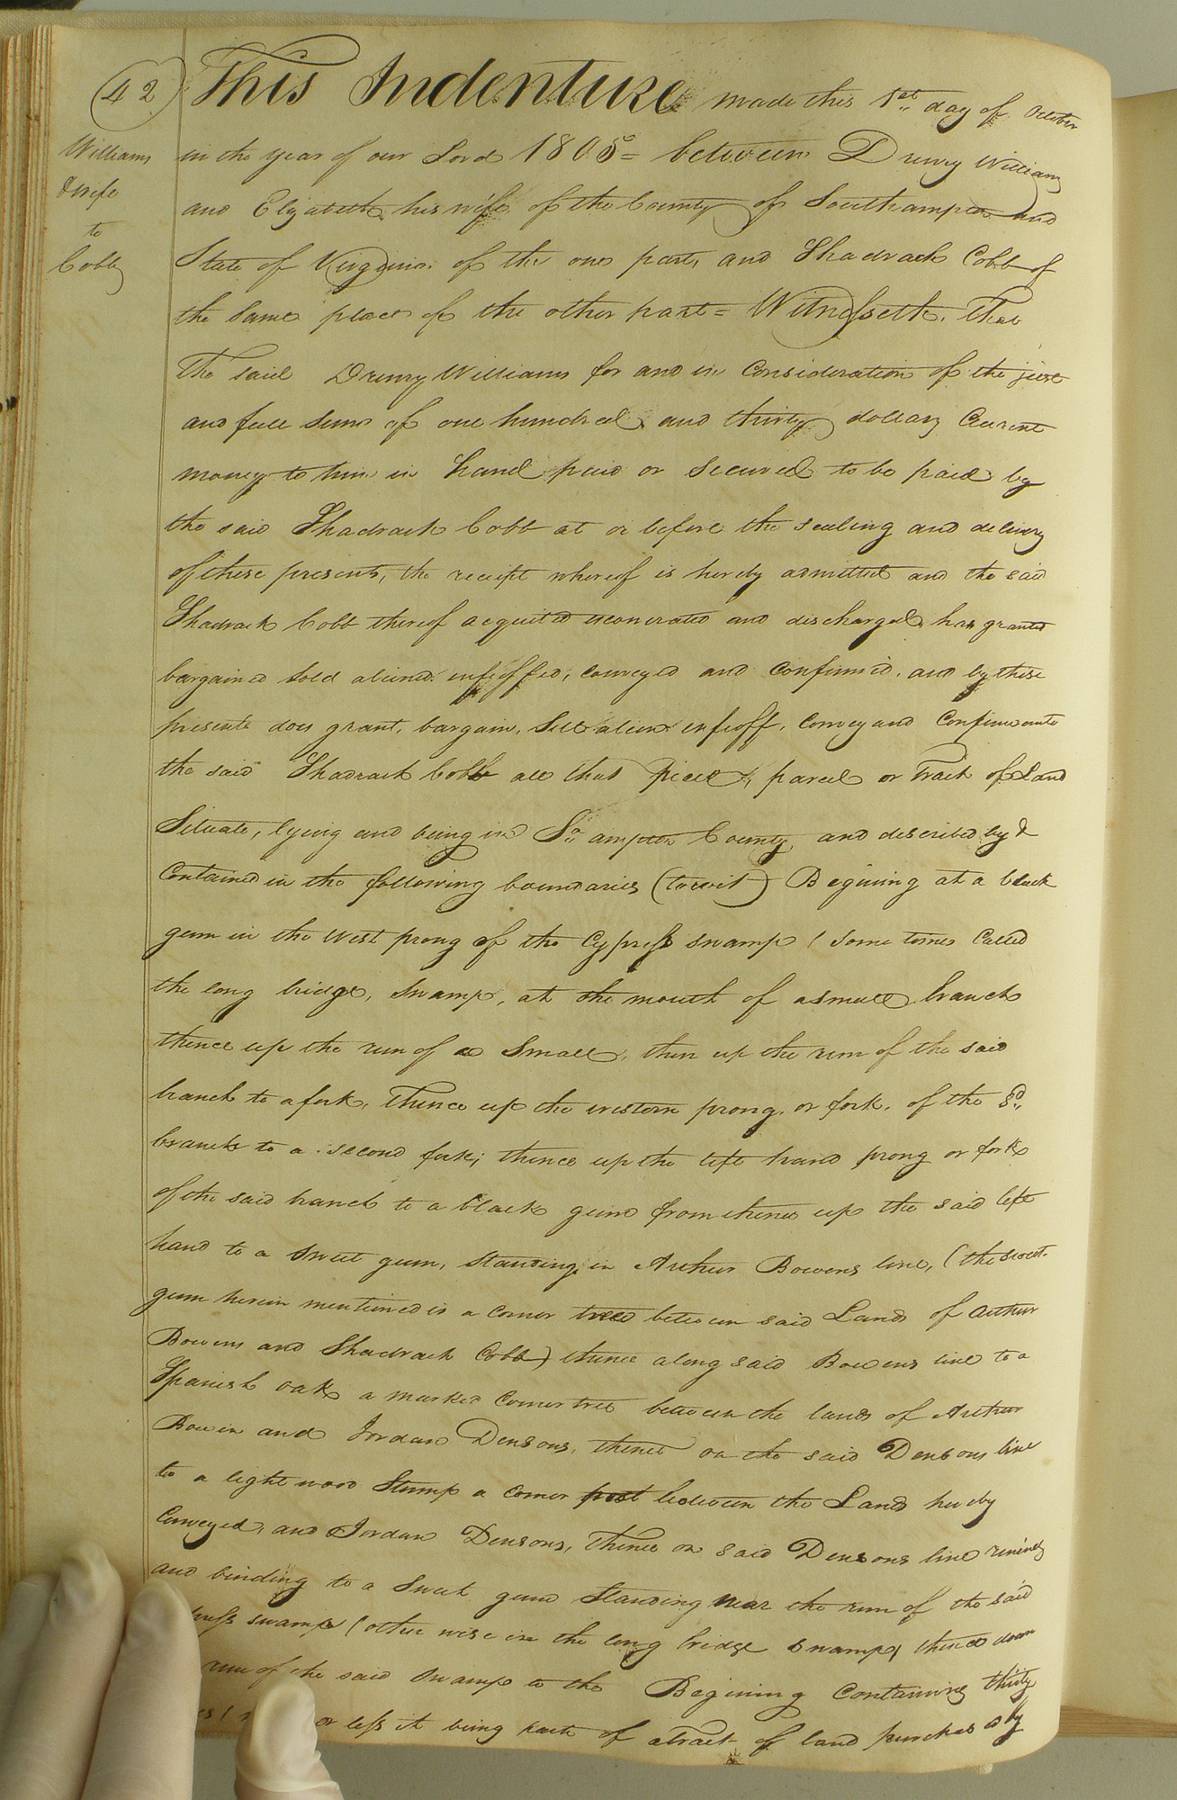 42
Williams
& wife
to
Cobb
This Indenture made this 1st day of October
in the year of our Lord 1805 = between Drewry Williams
and Elizabeth his wife of the County of Southampton and
State of Virginia of the one part, and Shadrack Cobb of
the same place of the other part = Witnesseth. That
the said Drewry Williams for and in Consideration of the just
and full sum of one hundred and thirty dollars Current
money to him in hand paid or secured to be paid by
the said Shadrack Cobb at or before the sealing and delivery
of these presents, the receipt whereof is hereby admitted and the said
Shadrack Cobb thereof acquitted exonerated and discharged, has granted
bargained sold aliened infeoffed, conveyed and confirmed, and by these
presents does grant, bargain, sell alien infeoff, convey and confirm unto
the said Shadrack Cobb all that piece, parcel or Tract of Land
Situate, lying and being in So. ampton County, and described by &
Contained in the following boundaries (towit) Begining at a black
gum in the west prong of the Cypress swamp (some times Called
the long bridge, swamp, at the mouth of a small branch
thence up the run of a small, then up the run of the said
branch to a fork, Thence up the western prong, or fork, of the sd.
branch to a second fork; thence up the left hand prong or fork
of the said branch to a black gum from thence up the said left
hand to a sweet gum, standing in Arthur Bowens line, (the sweet
gum herein mentioned is a corner tree between said Lands of Arthur
Bowens and Shadrack Cobb) thence along said Bowens line to a
Spanish oak a marked corner tree between the lands of Arthur
Bowen and Jordan Densons, thence on the said Densons line
to a light wood Stump a corner post between the Land hereby
Conveyed, and Jordan Densons, Thence on said Densons line runing
and binding to a Sweet gum Standing near the run of the said
press swamp (other wise in the long bridge swamp) thence down
run of the said swamp to the Begining Containing thirty
or less it being part of a Tract of land purchased by